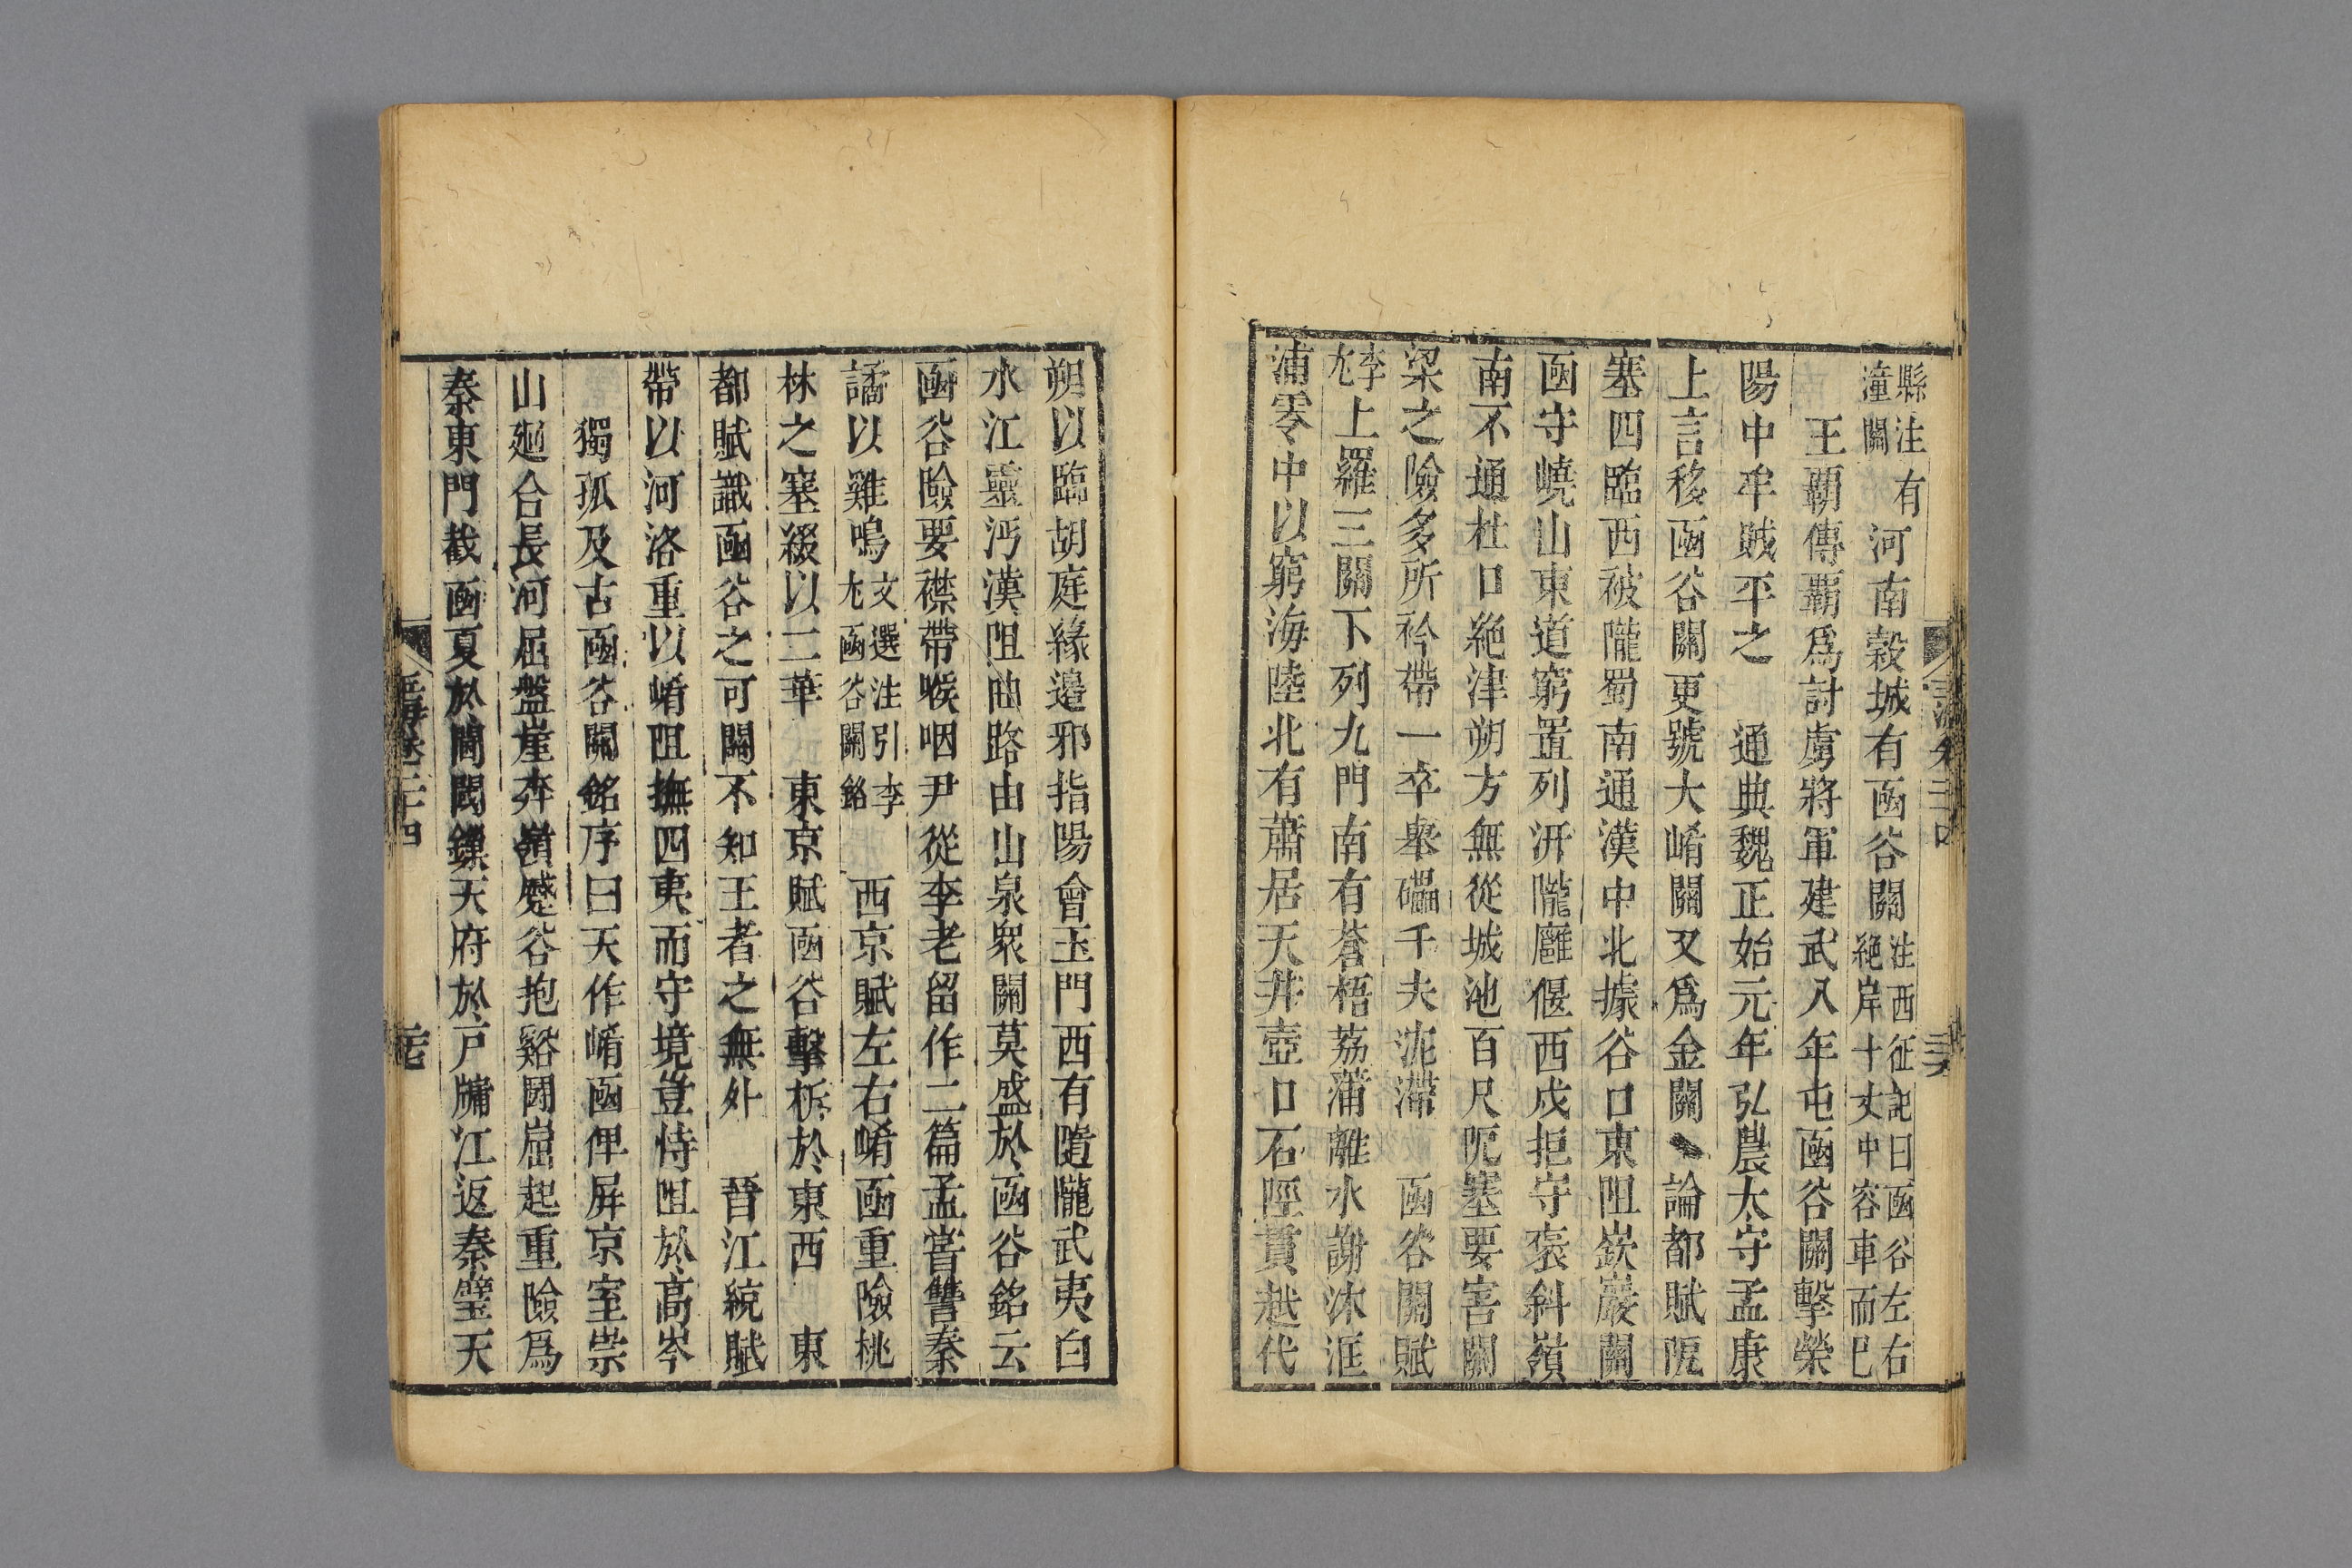 縣注有河南穀城有函谷關注西征記曰函谷左右
潼關絶岸十丈中容車而巳
王覇傳覇爲討虜將軍建武八年屯函谷關擊榮
陽中牟賊平之 通典魏正始元年弘農太守孟康
上言移函谷關更號大崤關又爲金關 論都賦阨
塞四臨西被隴蜀南通漢中北據谷口東阻嶔巖關
函守嶢山東道窮置列汧隴廱偃西戍拒守襃斜嶺
南不通杜口絶津朔方無從城池百尺阨塞要害關
梁之險多所衿帶一卒舉礧千夫沈滯 函谷關賦
李尤上羅三關下列九門南有蒼梧荔蒲離水謝沐洭
浦零中以窮海陸北有蕭居天井壺口石陘貫越代
朔以臨胡庭緣邉邪指陽會玉門西有隨隴武夷白
水江靈沔漢阻曲路由山泉衆關莫盛於函谷銘云
函谷險要襟帶喉咽尹從李老留作二篇孟嘗讐秦
譎以雞鳴文選注引李尤函谷關銘 西京賦左右崤函重險桃
林之塞綴以二華 東京賦函谷擊柝於東西 東
都賦識函谷之可關不知王者之無外 晉江統賦
帶以河洛重以崤阻撫四夷而守境豈恃阻於高岑
獨孤及古函谷關銘序曰天作崤函俾屏京室崇
山𢌞合長河屈盤崖奔嶺蹙谷抱谿鬭崫起重險爲
秦東門截函夏於閫閾鏁天府於戸牖江返秦璧天